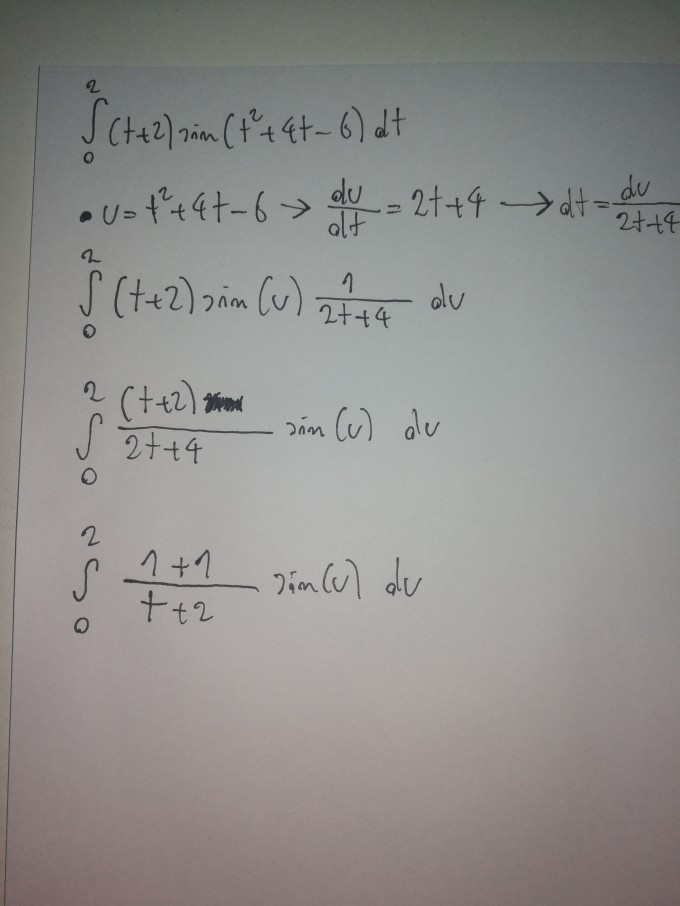 ∫₀² (t+2) sin(t²+4t-6) dt
• u = t²+4t-6 → du/dt = 2t+4 → dt = du/2t+4
∫₀² (t+2) sin(u) 1/2t+4 du
∫₀² (t+2)/2t+4 sin(u) du
∫₀² 1+1/t+2 sin(u) du